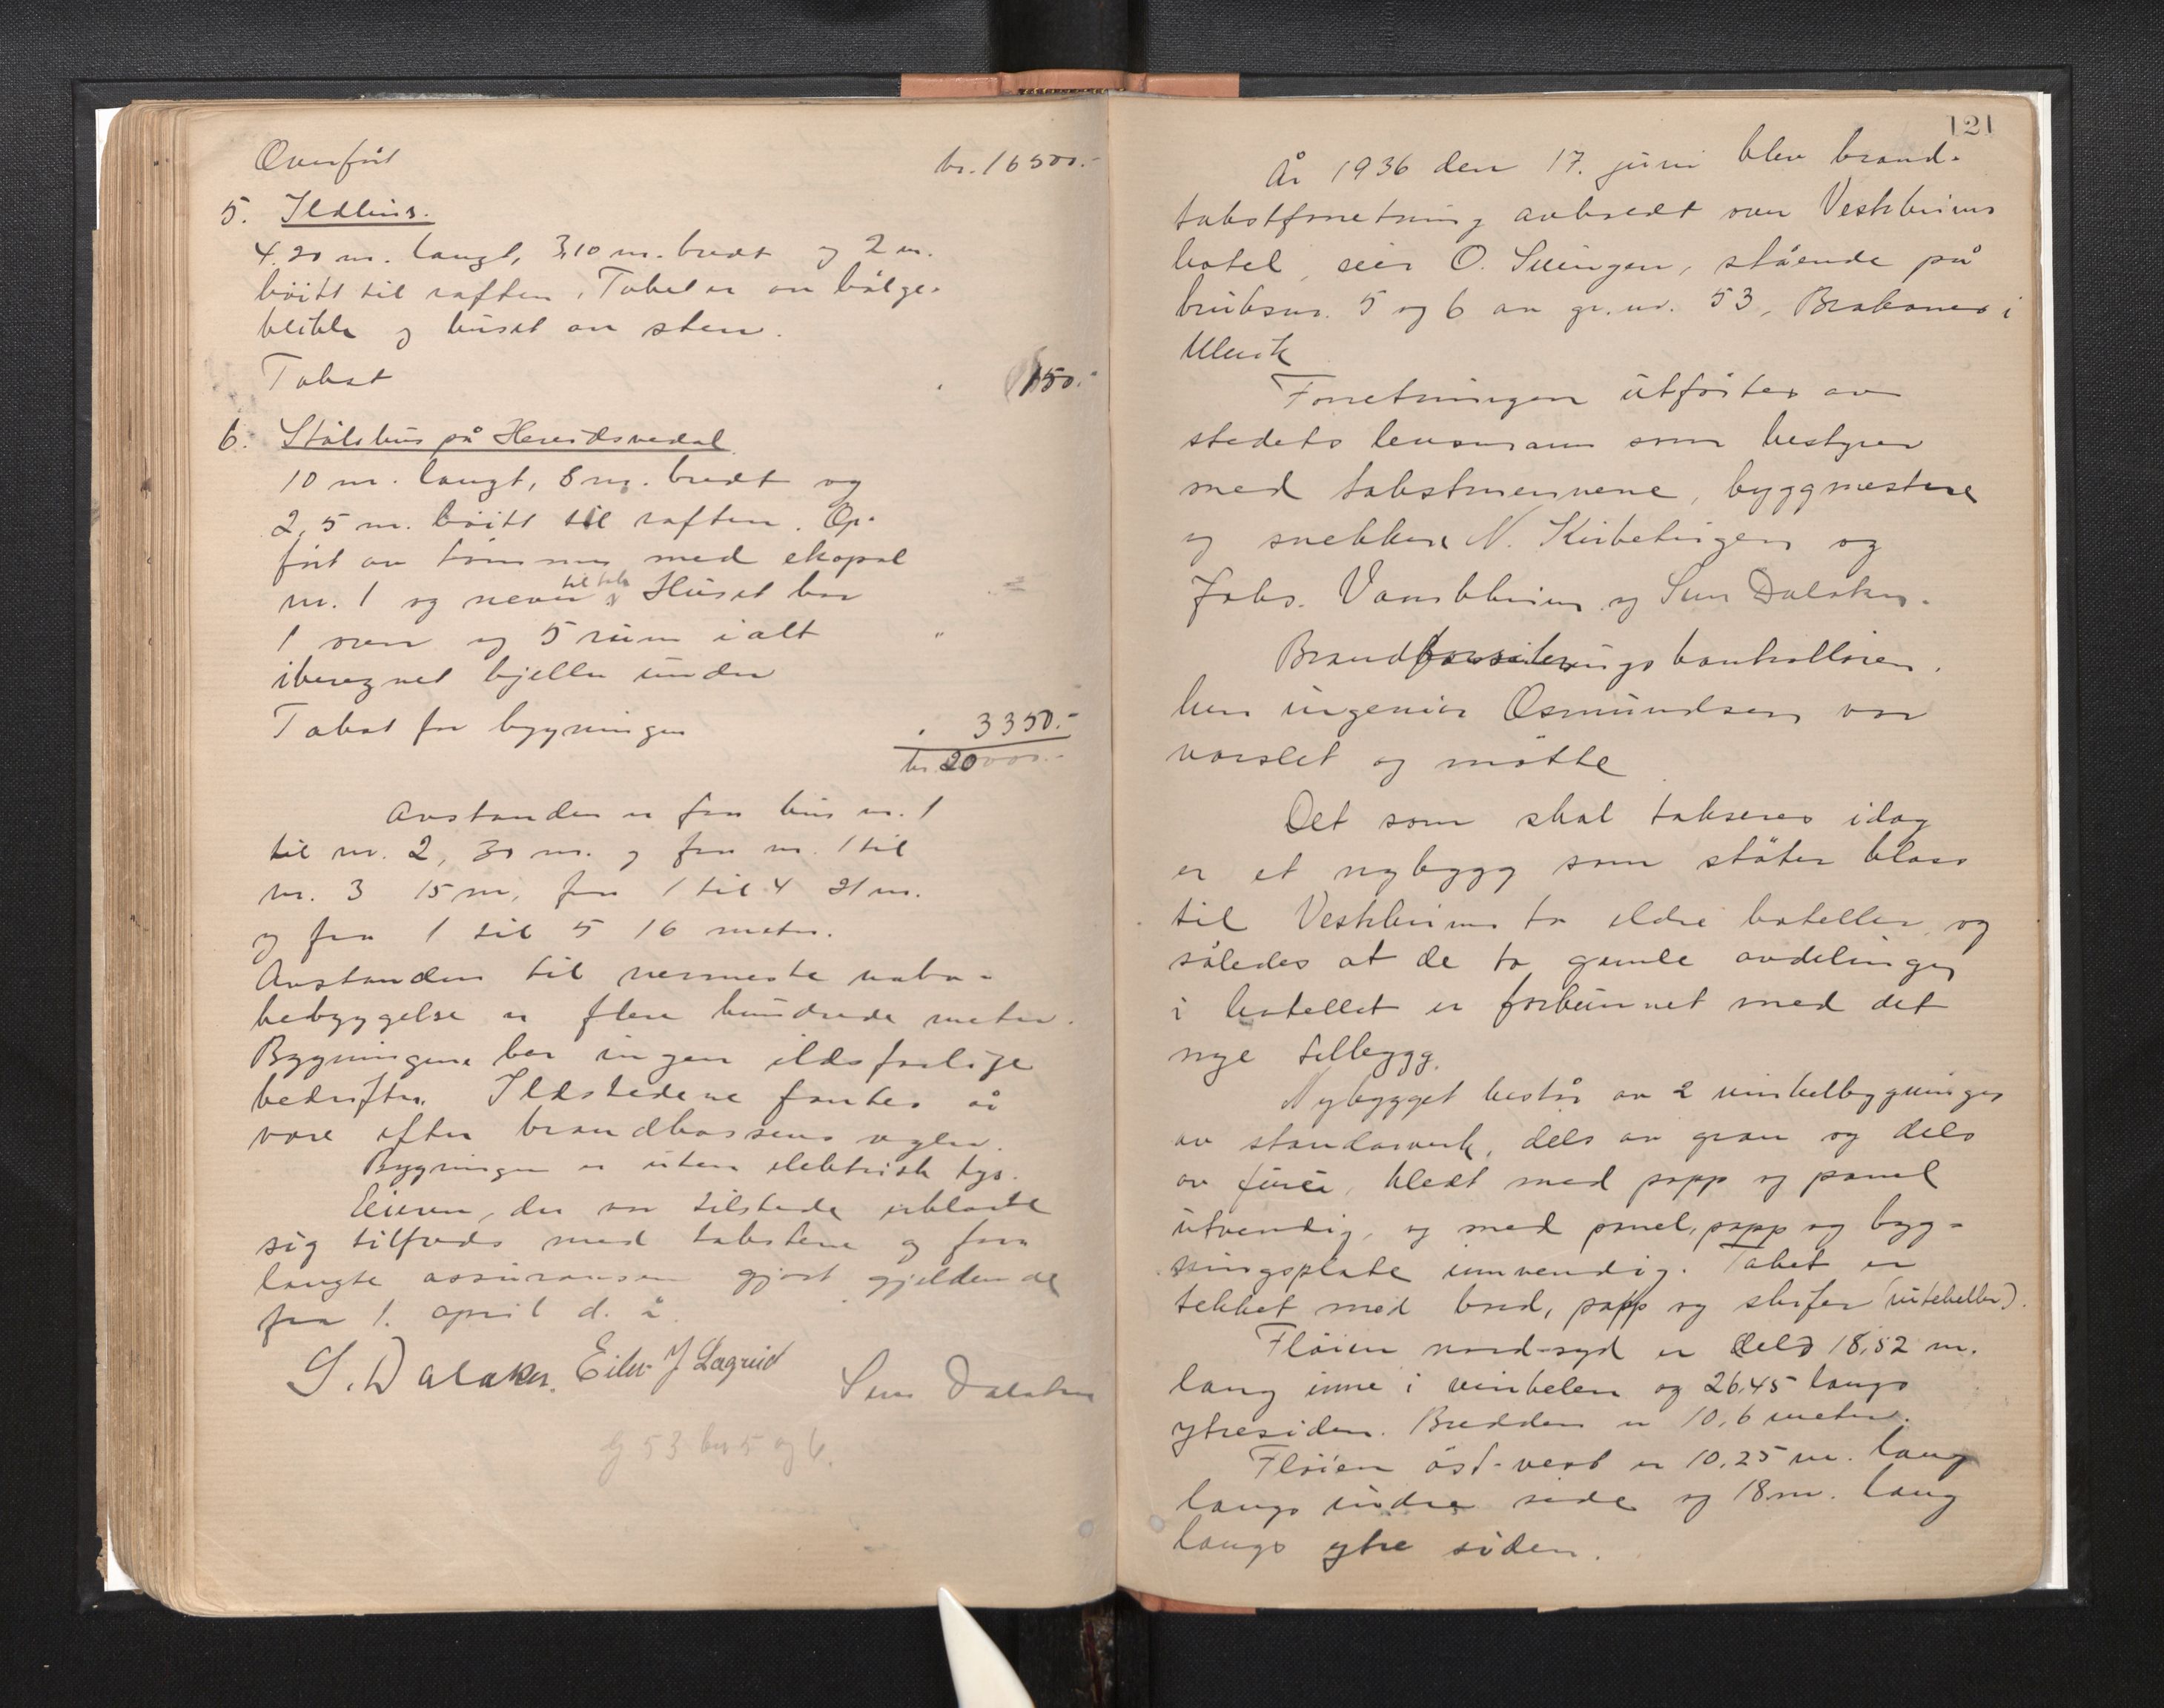 Overført kr. 16500.-
5. Ildhus.
4.20 m. langt, 3,10 m. bredt og 2 m.
höitt til raften. Taket er av bölge-
blikk og huset av sten.
Takst " 150.-
6. Stölshus på
10 m. langt, 8 m. bredt og
2,5 m. höitt til raften. Op-
fört av tömmer med ekopal
nr. 1 og never til tak. Huset har
1 ovn og 5 rum i alt
iberegnet kjeller under
Takst for bygningen " 3350.-
kr. 20000.-
Avstanden er fra hus nr. 1
til nr. 2, 30 m. og fra nr. 1 til
nr. 3 15 m, fra 1 til 4 21 m.
og fra 1 til 5 16 meter.
Avstanden til nermeste nabo-
bebyggelse er flere hundrede meter.
Bygningene har ingen ildsfarlige
bedrifter. Ildstedene fantes å
være efter brandkassens regler.
Bygningen er uten elektrisk lys.
Eieren, der var tilstede erklærte
sig tilfreds med takstene og for-
langte assuransen gjort gjeldende
fra 1. april d. å.
S. Dalaker. Eilev J Lægreid Sem Dalaker
G 53 br 5 og 6.
121
År 1936 den 17. juni blev brand-
takstforretning avholdt over Vestheims
hotel, eier O. Svingen, stående på
bruksnr. 5 og 6 av gr. nr. 53, Brakanes i
Ulvik
Forretningen utförtes av
stedets lensmann som bestyrer
med takstmennene, byggmestere
og snekkere N. Kirketeigen og
Johs. Vambheim og Sem Dalaker.
Brandforsikringskontrollören.
herr ingeniör Osmundsen var
varslet og mötte
Det som skal takseres idag
er et nybygg som stöter klass
til Vestheims to eldre hoteller, og
således at de to gamle avdelinger
i hotellet er forbunnet med det
nye tilbygg.
Nybygget består av 2 vinkelbygninger
av standarverk, dels av gran og dels
av furu, kledt med papp og panel
utvendig, og med panel, papp og byg-
ningsplate innvendig. Taket er
tekket med bord, papp og skifer (viteheller).
Flöien nord-syd er dels 18,52 m.
lang inne i vinkelen og 26,45 langs
ytresiden. Bredden er 10,6 meter.
Flöien öst-vest er 10,25 m. lang
langs indre side og 18 m. lang
langs ytre siden.